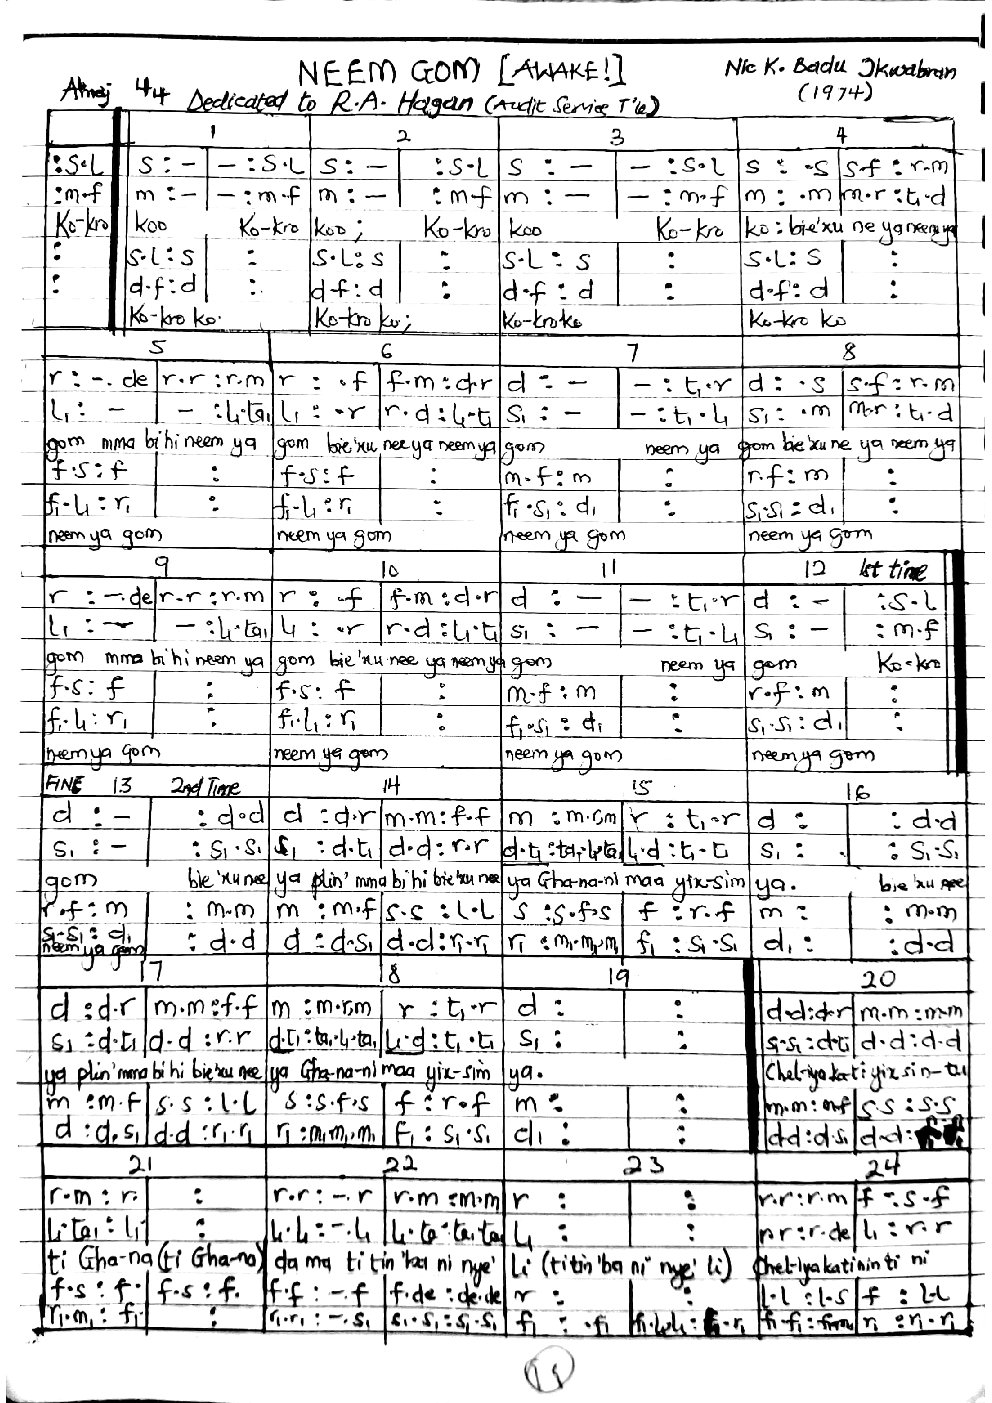 NEEM GOM [AWAKE!]
Nic K. Badu
(1974)
4/4 Dedicated to R.A. Hagan (Audit Service T'le)
1 2 3 4
:S.L s : – – : S.L s : – :S.L s : – – :S.L s : .s s.f : r.m
:m.f m : – – : m.f m : – : m.f m : – – : m.f m : .m m.r : t₁.d
Ko-kro koo Ko-kro koo; Ko-kro koo Ko-kro ko : bie'xu ne ya neem ya
: S.L : s : S.L : s : S.L : s : S.L : s :
: d.f : d : d.f : d : d.f : d : d.f : d :
Ko-kro ko. Ko-kro ko; Ko-kro ko Ko-kro ko
5 6 7 8
r : –. de r.r : r.m r : .f f.m : d.r d : – – : t₁.r d : .s s.f : r.m
l₁ : – – : l₁.ta₁ l₁ : .r r.d : l₁.t₁ s₁ : – – : t₁.l₁ s₁ : .m m.r : t₁.d
gom mma bi hi neem ya gom bie'xu nee ya neem ya gom neem ya gom bie'xu ne ya neem ya
f.s : f : f.s : f : m.f : m : r.f : m :
f₁.l₁ : r₁ : f₁.l₁ : r₁ : f₁.s₁ : d₁ : s₁.s₁ : d₁ :
neem ya gom neem ya gom neem ya gom neem ya gom
9 10 11 12 1st time
r : –. de r.r : r.m r : .f f.m : d.r d : – – : t₁.r d : – :S.L
l₁ : – – : l₁.ta₁ l₁ : .r r.d : l₁.t₁ s₁ : – – : t₁.l₁ s₁ : – : m.f
gom mma bi hi neem ya gom bie'xu nee ya neem ya gom neem ya gom Ko-kro
f.s : f : f.s : f : m.f : m : r.f : m :
f₁.l₁ : r₁ : f₁.l₁ : r₁ : f₁.s₁ : d₁ : s₁.s₁ : d₁ :
neem ya gom neem ya gom neem ya gom neem ya gom
FINE 13 2nd Time 14 15 16
d : – : d.d d : d.r m.m : f.f m : m.rm r : t₁.r d : : d.d
s₁ : – : s₁.s₁ s₁ : d.t₁ d.d : r.r d.t₁ : ta₁.l₁.ta₁ l₁.d : t₁.t₁ s₁ : . : s₁.s₁
gom bie'xu nee ya plin' mma bi hi bie'xu nee ya Gha-na-ni maa yix-sim ya. bie'xu nee
r.f : m : m.m m : m.f s.s : l.l s : s.f.s f : r.f m : : m.m
s₁.s₁ : d₁ : d.d d : d.s₁ d.d : r₁.r₁ r₁ : m₁.m₁.m₁ f₁ : s₁.s₁ d₁ : : d.d
neem ya gom
17 18 19 20
d : d.r m.m : f.f m : m.rm r : t₁.r d : : d.d : d.r m.m : m.m
s₁ : d.t₁ d.d : r.r d.t₁ : ta₁.l₁.ta₁ l₁.d : t₁.t₁ s₁ : : s₁.s₁ : d.t₁ d.d : d.d
ya plin' mma bi hi bie'xu nee ya Gha-na-ni maa yix-sim ya. Chel-iya ka ti yix sin-tu
m : m.f s.s : l.l s : s.f.s f : r.f m : : m.m : m.f s.s : s.s
d : d.s₁ d.d : r₁.r₁ r₁ : m₁.m₁.m₁ f₁ : s₁.s₁ d₁ : : d.d : d.s₁ d.d :
21 22 23 24
r.m : r. : r.r : –.r r.m : m.m r : : r.r : r.m f : s.f
l₁.ta₁ : l₁ : l₁.l₁ : –.l₁ l₁.ta : ta₁.ta₁ l₁ : : r : r.de l₁ : r.r
ti Gha-na (ti Gha-na) da ma ti tin 'baa ni nye' li (ti tin 'ba ni' nye' li) Chel-iya ka ti nin ti ni
f.s : f. f.s : f. f.f : –.f f.de : de.de r : : l.l : l.s f : l.l
r₁.m₁ : f₁ : r₁.r₁ : –.s₁ s₁.s₁ : s₁.s₁ f₁ : .f₁ r₁ : r₁.r₁